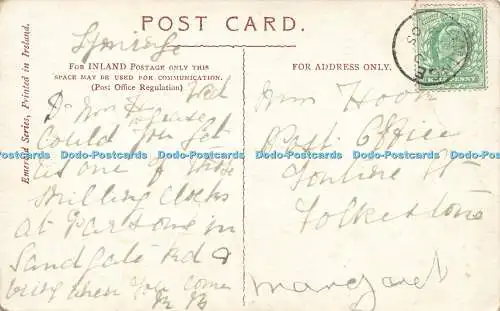 POST CARD.
Lyminge
FOR INLAND POSTAGE ONLY THIS
SPACE MAY BE USED FOR COMMUNICATION.
(Post Office Regulation)
FOR ADDRESS ONLY.
Emerald Series, Printed in Ireland.
Wed
D Mrs H
Could you get
us one of those
Shilling Clocks
at Parsons in
Sandgate Rd &
bring when you come
Mrs Hook
Post Office
Folkestone
Margaret
Dodo-Postcards Dodo-Postcards Dodo-Postcards Dodo-Postcards Dodo-Postcards